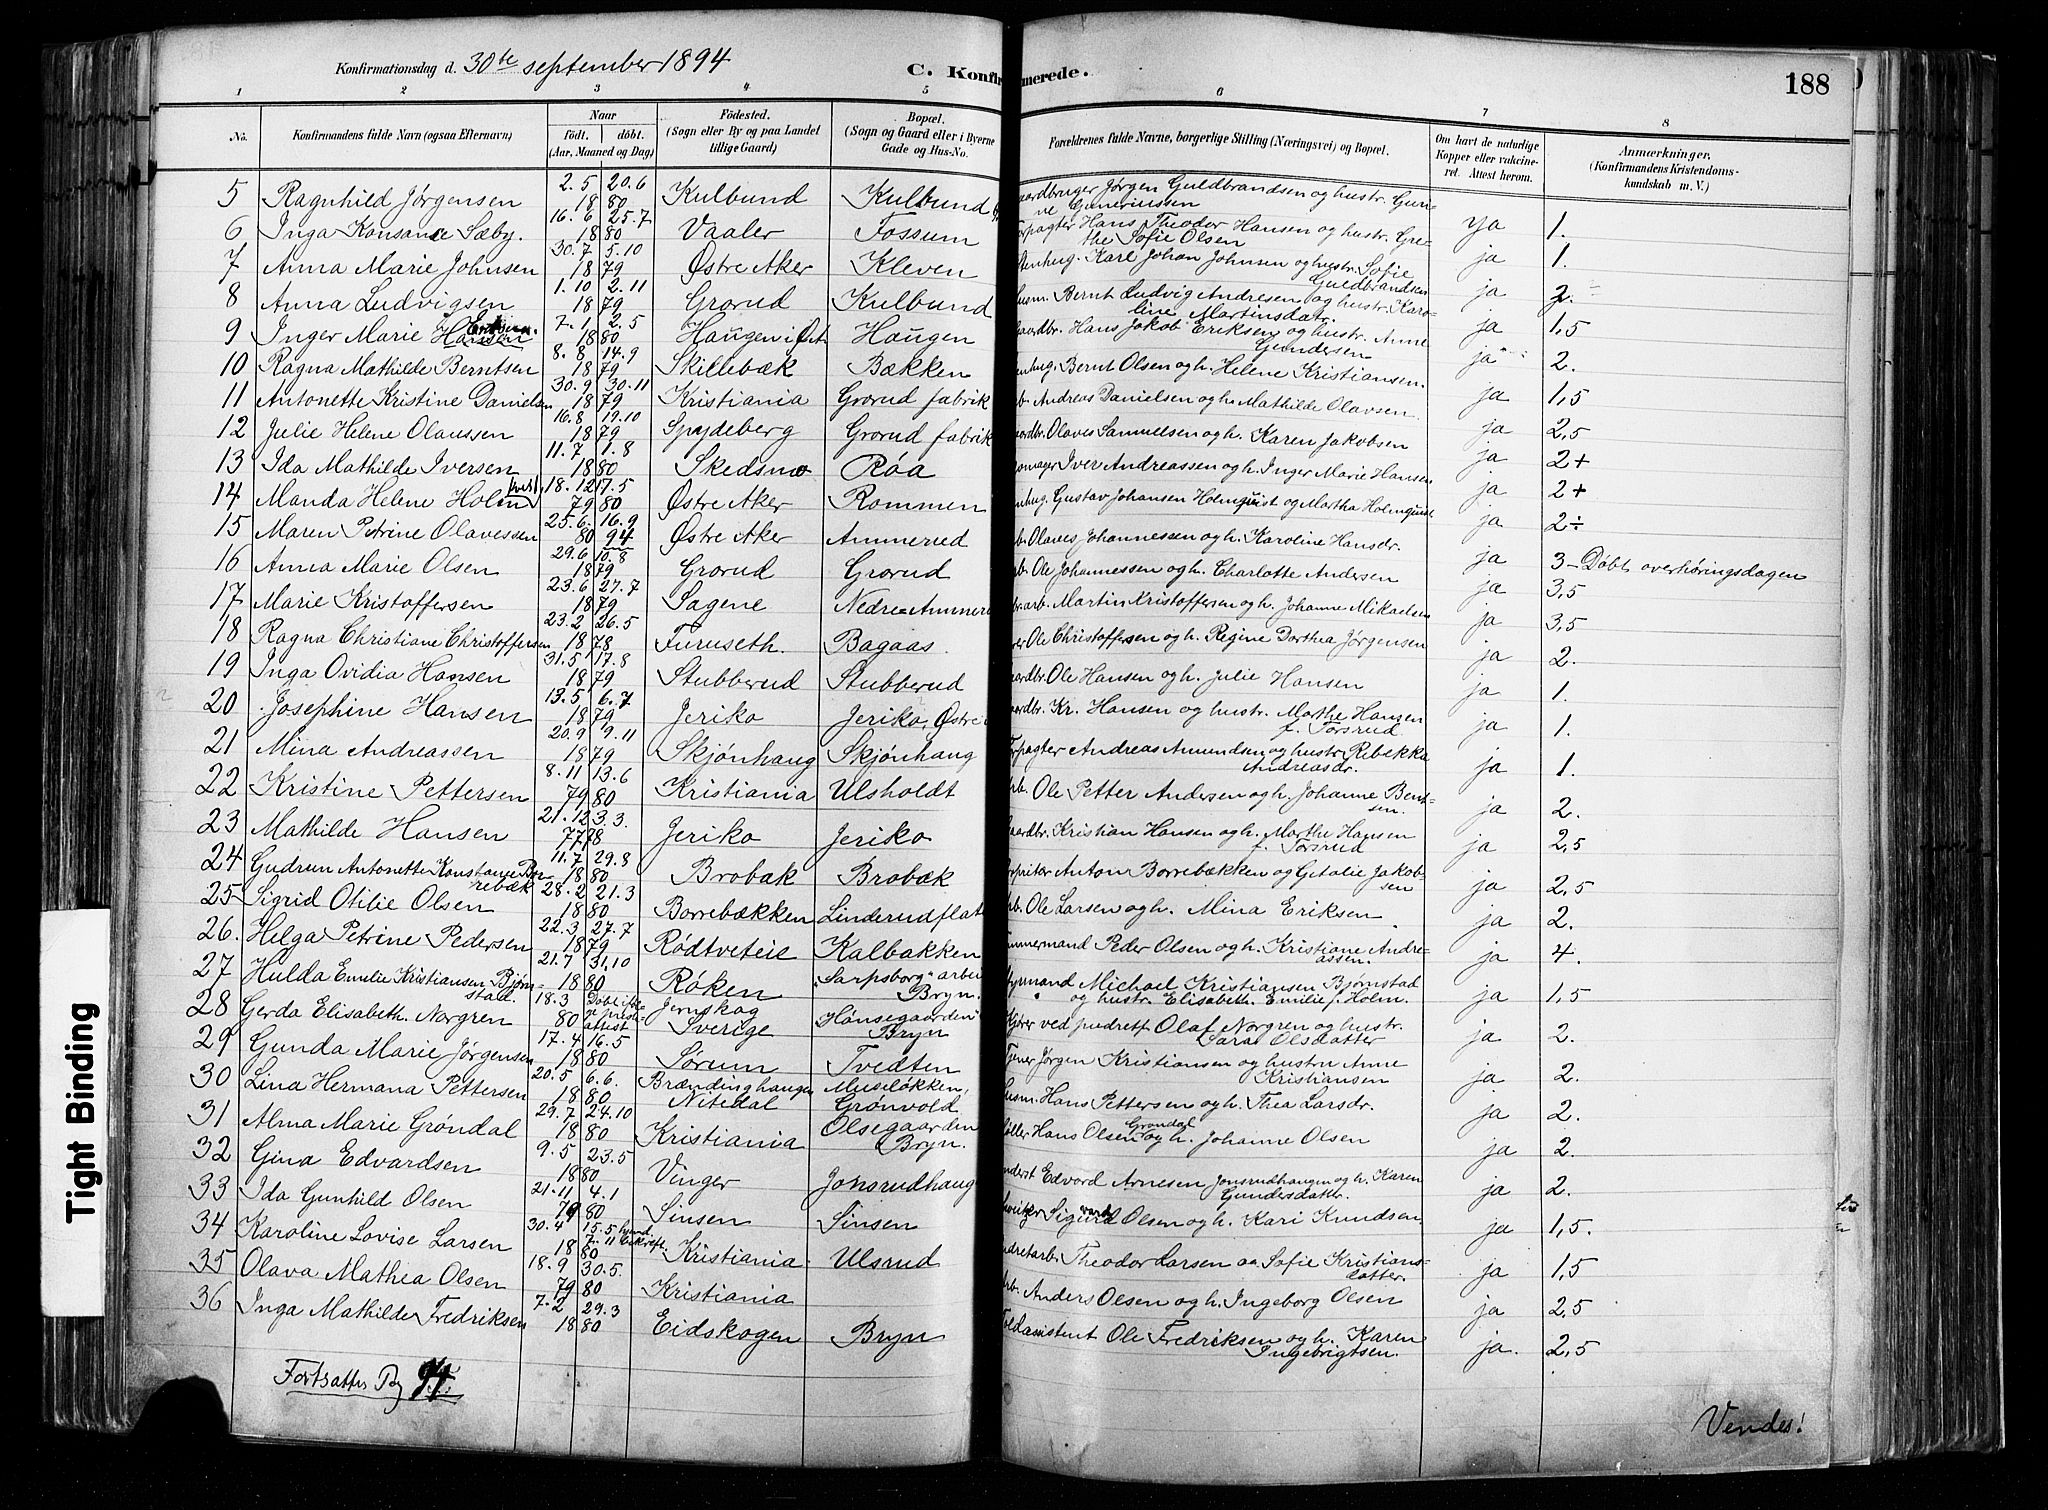 Konfirmationsdag d. 30te september 1894
C. Konfirmerede.
188
1 2 3 4 5 6 7 8
No. Konfirmandens fulde Navn (ogsaa Efternavn) Naar födt. döbt. (Aar, Maaned og Dag) Födested. (Sogn eller By og paa Landet tillige Gaard) Bopæl. (Sogn og Gaard eller i Byerne Gade og Hus-No. Forældrenes fulde Navne, borgerlige Stilling (Næringsvei) og Bopæl. Om havt de naturlige Kopper eller vaccineret. Attest herom. Anmærkninger. (Konfirmandens Kristendomskundskab m. V.)
5 Ragnhild Jørgensen 2.5 20.6 1880 Kulbund Kulbund Jørgen Guldbrandsen og hustr. Gunne Guneriussen Ya 1.
6 Inga Konstance Sæby. 16.6 25.7 1880 Vaaler Fossum Hans Theodor Hansen og hustr. Grethe Sofie Olsen ja 1.
7 Anna Marie Johnsen 30.7 5.10 1879 Østre Aker Kleven Karl Johan Johnsen og hustr. Sofie Guldbrandsen ja 2.
8 Anna Ludvigsen 1.10 2.11 1879 Grorud Kulbund Bernt Ludvig Andresen og hustr. Karoline Martinsdatr. ja 1,5
9 Inger Marie Hansen 7.1 2.5 1880 Haugen i Øst Haugen Hans Jakob Eriksen og hustr. Anne Gundersen ja 2.
10 Ragna Mathilde Berntsen 8.8 14.9 1879 Skillebæk Bækken Bernt Olsen og h. Helene Kristiansen. ja 1,5
11 Antonette Kristine Danielsen 30.9 30.11 1879 Kristiania Grorud fabrik Andreas Danielsen og h. Mathilde Olavsen. ja 2,5
12 Julie Helene Olaussen 16.8 19.10 1879 Spydeberg Grorud fabrik Olaves Samuelsen og h. Karen Jakobsen ja 2+
13 Ida Mathilde Iversen 11.7 1.8 1880 Skedsmo Røa Iver Andreassen og h. Inger Marie Hansen ja 2+
14 Manda Helene Holmqvist 18.12 17.5 79 80 Østre Aker Rommen Gustav Johansen Holmquist og Martha Holmquist ja 2÷
15 Maren Petrine Olavessen 25.6. 16.9 80 94 Østre Aker Ammerud Olaves Johannessen og h. Karoline Hansdr. ja 3 - Døbt overhøringsdagen
16 Anna Marie Olsen 29.6 10.8 1879 Grorud Grorud Ole Johannessen og h. Charlotte Andersen ja 3,5
17 Marie Kristoffersen 23.6 27.7 1879 Sagene Nedre Ammerud Martin Kristoffersen og h. Johanne Mikaelsen ja 3,5
18 Ragna Christiane Christoffersen 23.2 26.5 1878 Furuseth. Bagaas. Ole Christoffersen og h. Regine Dorthea Jørgensen ja 2.
19 Inga Ovidia Hansen 31.5 17.8 1879 Stubberud Stubberud Ole Hansen og h. Julie Hansen ja 1.
20 Josephine Hansen 13.5 6.7 1879 Jeriko Jeriko, Østre Kr. Hansen og hustr. Marthe Hansen f. Torsrud ja 1.
21 Mina Andreassen 20.9 9.11 1879 Skjønhaug Skjønhaug Andreas Amundsen og hustr. Rebekka Andreasdr. ja 1.
22 Kristine Pettersen 8.11 13.6 79 80 Kristiania Ulsholdt Ole Petter Andersen og h. Johanne Bentsen. ja 2.
23 Mathilde Hansen 21.12 3.3. 77 78 Jeriko Jeriko Kristian Hansen og h. Marthe Hansen f. Torsrud ja 2,5
24 Gudrun Antonette Konstance Borrebæk 11.7 29.8 1880 Brobak Brobæk Anton Borrebækken og Getalie Jakobsen ja 2,5
25 Sigrid Otilie Olsen 28.2 21.3 1880 Borrebækken Linderudflat Ole Larsen og h. Mina Eriksen ja 2.
26. Helga Petrine Pedersen 22.3 27.7 1879 Rødtveteie Kalbakken Peder Olsen og h. Kristiane Andreassen. ja 4.
27 Hulda Emelie Kristiansen Bjørnstad. 21.7 31.10 1880 Røken Sarpsborg arbei Bryn. Styrmand Michael Kristiansen Bjørnstad og hustr. Elisabeth. Emilie f. Holm. ja 1,5
28 Gerda Elisabeth. Norgren 18.3 80 Døbt ifølge præsteattest Jernskog Sverige Hønsegaarden Bryn Kjører ved pudretf Olaf Norgren og hustr. Sara Olsdatter ja 2.
29 Gunda Marie Jørgensen 17.4 16.5 1880 Sørum Tvedten Tjener Jørgen Kristiansen og hustru Anne Kristiansen ja 2.
30 Lina Hermana Pettersen 20.5 6.6. 1880 Brændinghaugen Nitedal Museløkken, Grønvold Hans Pettersen og h. Thea Larsdr. ja 2.
31 Alma Marie Grøndal 29.7 24.10 1880 Kristiania Olsegaarden Bryn. Hans Olsen Grøndal og h. Johanne Olsen ja 2.
32 Gina Edvardsen 9.5 23.5 1880 Vinger Jonsrudhaug Edvard Arnesen Jonsrudhaugen og h. Karen Gundersdatter. ja 2.
33 Ida Gunhild Olsen 21.11 4.1 79 80 Sinsen Sinsen Sigurd Olsen og h. Kari Knudsen ja 1,5.
34 Karoline Lovise Larsen 30.4 15.5 hjemd. 7.11 bekræft. 1880 Kristiania Ulsrud Theodor Larsen og Sofie Kristiansdatter. ja 1,5
35 Olava Mathea Olsen 18.9 30.5. 79 80 Kristiania Anders Olsen og h. Ingeborg Olsen ja 2,5
36 Inga Mathilde Fredriksen 7.2 29.3 1880 Eidskogen Bryn Toldassistent Ole Fredriksen og h. Karen Ingebrigtsen. ja. 2,5
Fortsattes Pag 94.
Vendes!
Tight Binding